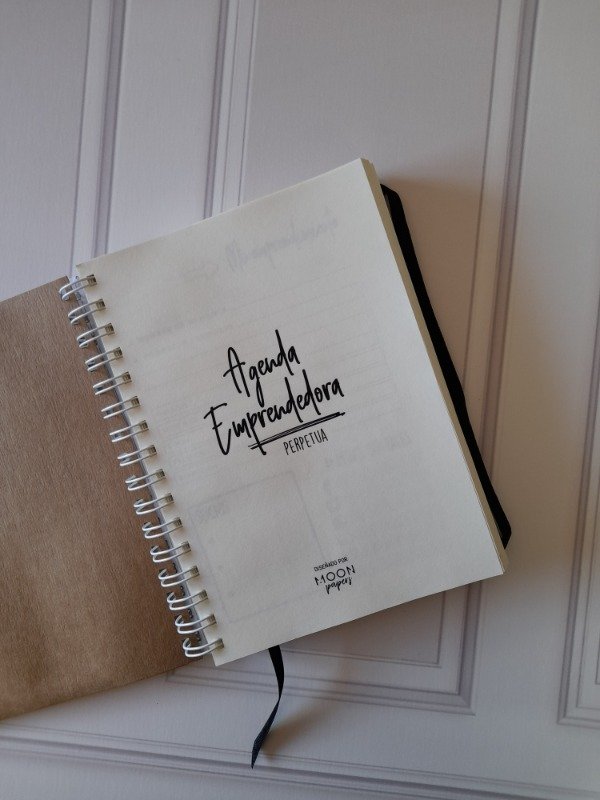 Agenda
Emprendedora
PERPETUA
DISEÑADO POR
MOON
papers